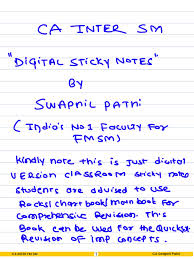 CA INTER SM
"DIGITAL STICKY NOTES"
BY
SWAPNIL PATNI
(India's No 1 Faculty For
FM SM)
Kindly note this is just digital
VERSION CLASSROOM sticky notes
students are advised to use
Rocks/chart book/main book for
comprehensive Revision. This
Book can be used for the Quickest
Revision of imp concepts.
CA Swapnil Patni